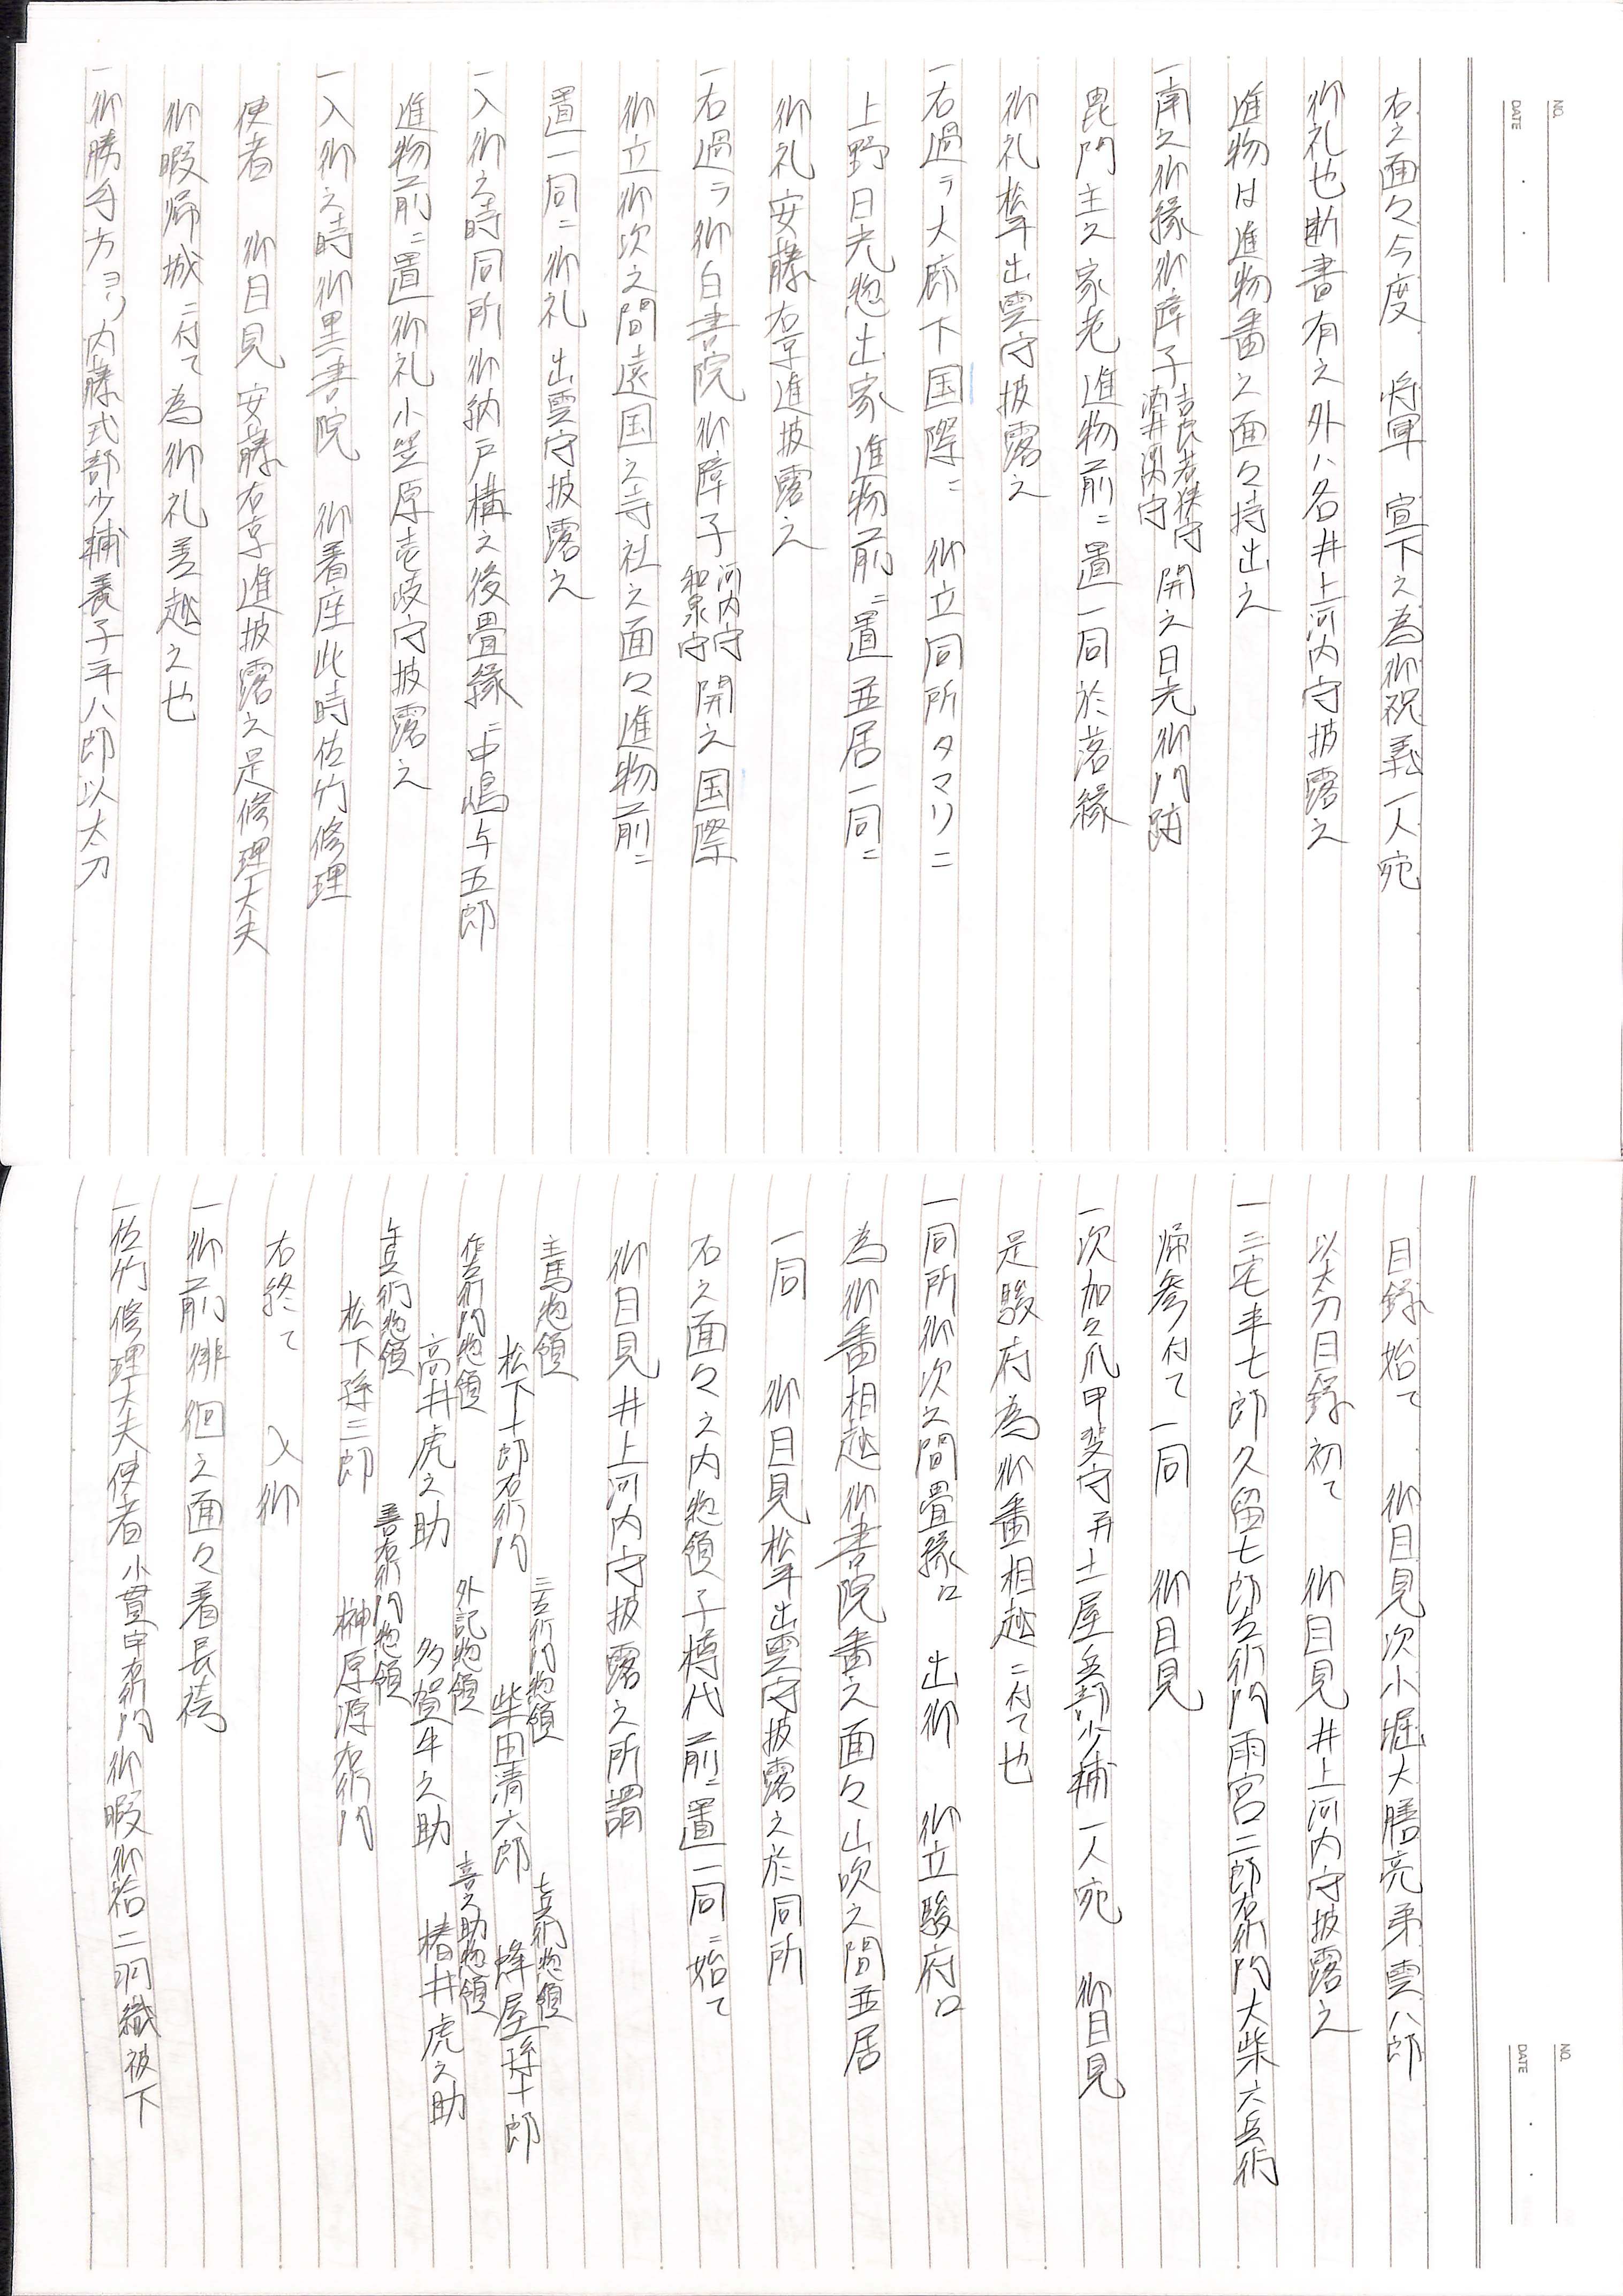 NO.
DATE
右之面々今度　将軍　宣下之為御祝義一人宛
御礼也断書有之外ハ各井上河内守披露之
進物は進物番之面々持出之
一南之御縁御障子吉良若狭守酒井隼守開之日光御門跡
毘門主之家老進物前ニ置一同於落縁
御礼松平出雲守披露之
一右過テ大廊下国際ニ　御立同所タマリニ
上野日光惣出家進物前ニ置並居一同ニ
御礼安藤右京進披露之
一右過テ御白書院御障子河内守和泉守開之国際
御立御次之間遠国之寺社之面々進物前ニ
置一同ニ御礼　出雲守披露之
一入御之時同所御納戸構之後畳縁ニ中嶋与五郎
進物前ニ置御礼小笠原壱岐守披露之
一入御之時御黒書院　御着座此時佐竹修理
使者　御目見安藤右京進披露之是修理大夫
御暇帰城ニ付て為御礼差越之也
一御勝手方ヨリ内藤式部少輔養子半八郎以太刀
目録始て　御目見次小堀大膳亮弟雲八郎
以太刀目録初て　御目見井上河内守披露之
一三宅半七郎久留七郎左衛門雨宮二郎右衛門大柴六兵衛
帰参付て一同　御目見
一次加々爪甲斐守并土屋兵部少輔一人宛　御目見
是駿府為御番相越ニ付て也
一同所御次之間畳縁ロ　出御　御立駿府ロ
為御番相越御書院番之面々山吹之間並居
一同　御目見松平出雲守披露之於同所
右之面々之内惣領子樽代前ニ置一同ニ始て
御目見井上河内守披露之所謂
主馬惣領　三左衛門惣領　七兵衛惣領
松下十郎右衛門　柴田清六郎　蜂屋孫十郎
作左衛門惣領　外記惣領　喜之助惣領
高井虎之助　多賀牛之助　椿井虎之助
午兵衛惣領　善右衛門惣領
松下孫三郎　榊原源右衛門
右終て　入御
一御前徘徊之面々着長袴
一佐竹修理大夫使者小貫宇右衛門御暇御袷二羽織被下
NO.
DATE